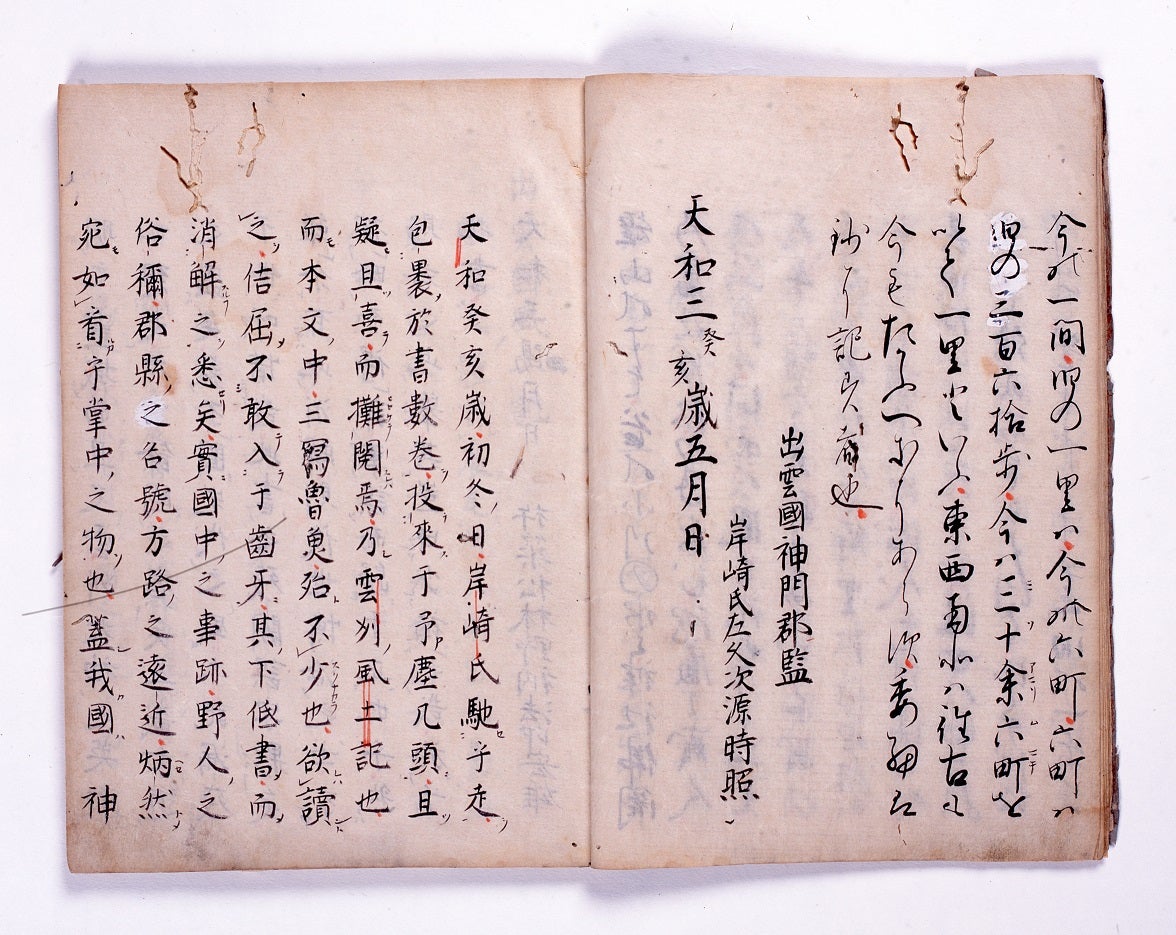 今の一間、旧の一里ハ今の六町、六町ハ
旧の三百六拾歩、今ハ三十余六町を
以て一里といふ、東西南北ハ往古も
今もたかへありあらす、委細
鈔に記
天和三癸亥歳五月日
出雲國神門郡監
岸崎氏左久次源時照
天和癸亥歳初冬日岸崎氏馳子走
包裹於書數卷投來于予塵几頭且
疑且喜而攤閲焉乃雲州風土記也
而本文中三寫魯魚殆不少也欲讀
之佶屈不敢入于齒牙其下低書而
消解之悉矣實國中之事跡野人之
俗稱郡縣之名號方路之遠近炳然
宛如看乎掌中之物也蓋我國神